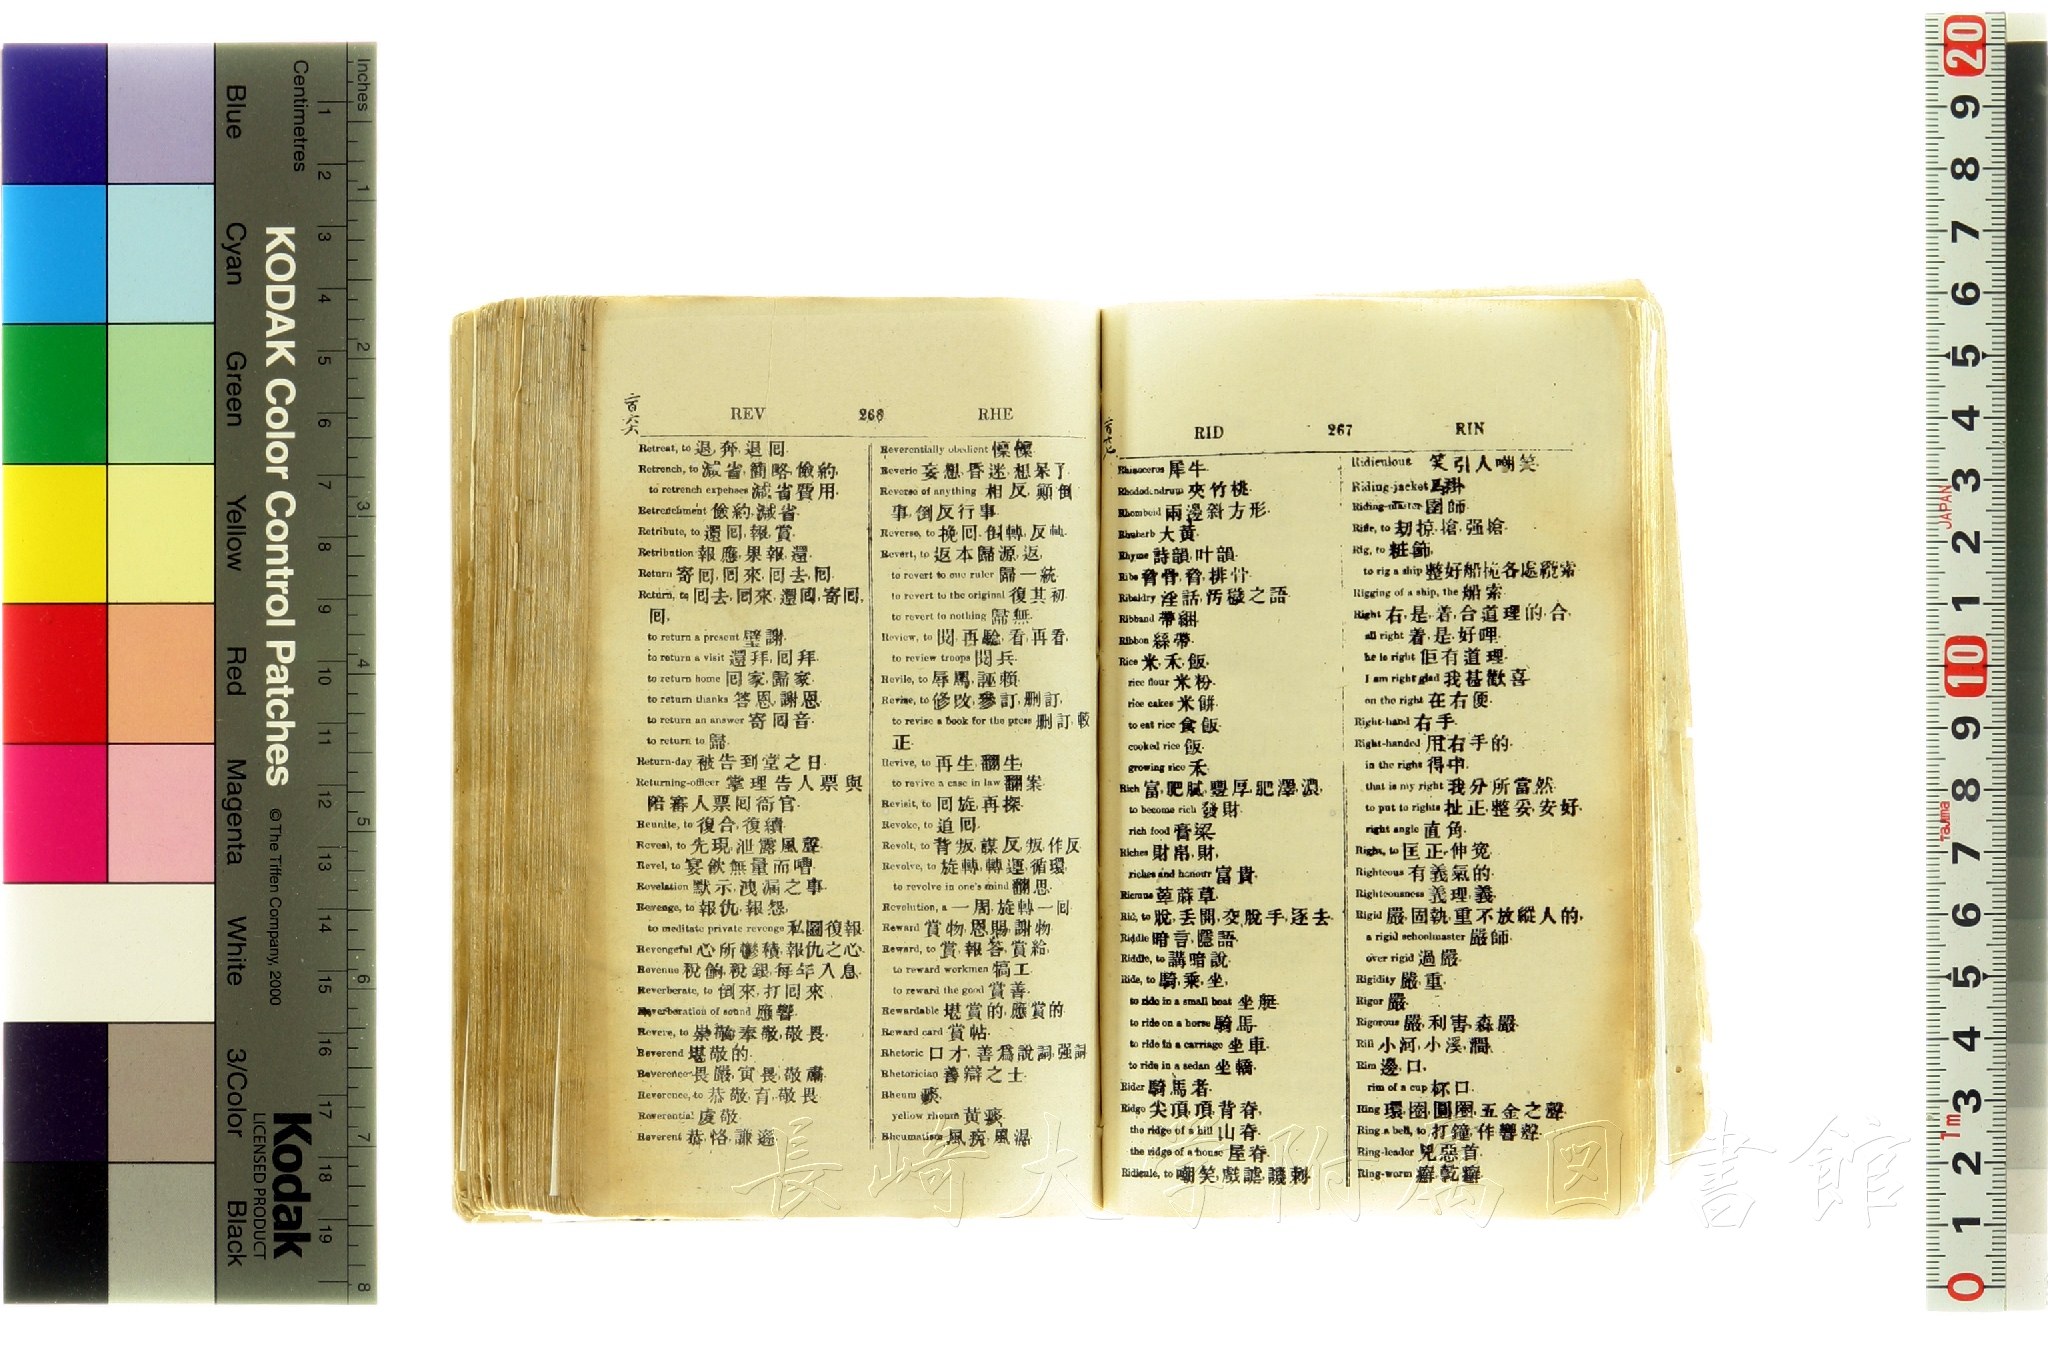 Inches
Centimetres
KODAK Color Control Patches
© The Tiffen Company, 2000
Blue
Cyan
Green
Yellow
Red
Magenta
White
3/Color
Black
Kodak
LICENSED PRODUCT
REV 266 RHE
Retreat, to 退, 奔, 退囘
Retrench, to 減省, 簡略, 儉約,
to retrench expenses 減省費用.
Retrenchment 儉約, 減省.
Retribute, to 還囘, 報, 賞.
Retribution 報應, 果報, 還.
Return 寄囘, 囘來, 囘去, 囘.
Return, to 囘去, 囘來, 還囘, 寄囘,
囘,
to return a present 璧謝.
to return a visit 還拜, 囘拜.
to return home 囘家, 歸家.
to return thanks 答恩, 謝恩.
to return an answer 寄囘音.
to return to 歸.
Return-day 被告到堂之日.
Returning-officer 掌理告人票與
陪審人票囘衙官.
Reunite, to 復合, 復續.
Reveal, to 先現, 泄露風聲.
Revel, to 宴飲無量而嘈.
Revelation 默示, 洩漏之事.
Revenge, to 報仇, 報怨,
to meditate private revenge 私圖復報.
Revengeful 心所鬱積, 報仇之心.
Revenue 稅餉, 稅銀, 每年入息.
Reverberate, to 倒來, 打囘來
Reverberation of sound 應響.
Revere, to 崇敬, 奉敬, 敬畏.
Reverend 堪敬的.
Reverence 畏嚴, 寅畏, 敬肅.
Reverence, to 恭敬, 敬畏
Reverential 虔敬
Reverent 恭恪, 謙遜.
Reverentially obedient 懍懍
Reverie 妄想, 昏迷, 想呆了
Reverse of anything 相反, 顚倒
事, 倒反行事.
Reverse, to 挽囘, 倒轉, 反
Revert, to 返本歸源, 返,
to revert to one ruler 歸一統
to revert to the original 復其初
to revert to nothing 歸無.
Review, to 閱, 再驗, 看, 再看,
to review troops 閱兵.
Revile, to 辱罵, 誣賴.
Revise, to 修改, 參訂, 删訂,
to revise a book for the press 删訂, 較
正.
Revive, to 再生, 翻生.
to revive a case in law 翻案.
Revisit, to 囘旋, 再探.
Revoke, to 追囘.
Revolt, to 背叛, 謀反, 叛, 作反
Revolve, to 旋轉, 轉運, 循環,
to revolve in one's mind 翻思.
Revolution, a 一周, 旋轉一囘
Reward 賞物, 恩賜, 謝物.
Reward, to 賞, 報答, 賞給.
to reward workmen 犒工.
to reward the good 賞善.
Rewardable 堪賞的, 應賞的.
Reward card 賞帖.
Rhetoric 口才, 善爲說詞, 强詞
Rhetorician 善辯之士.
Rheum 痰.
yellow rheum 黃痰.
Rheumatism 風痰, 風濕.
RID 267 RIN
Rhinoceros 犀牛
Rhododendrum 夾竹桃.
Rhomboid 兩邊斜方形.
Rhubarb 大黃.
Rhyme 詩韻, 叶韻.
Ribs 脅骨, 脅, 排骨.
Ribaldry 淫話, 污穢之語.
Ribband 帶
Ribbon 絲帶.
Rice 米, 禾, 飯.
rice flour 米粉.
rice cakes 米餅.
to eat rice 食飯.
cooked rice 飯.
growing rice 禾.
Rich 富, 肥膩, 豐厚, 肥澤, 濃,
to become rich 發財.
rich food 膏粱.
Riches 財帛, 財,
riches and honour 富貴.
Ricinus 萆蔴草.
Rid, to 脫, 丟開, 交脫手, 逐去.
Riddle 暗言, 隱語.
Riddle, to 講暗說.
Ride, to 騎, 乘, 坐,
to ride in a small boat 坐艇.
to ride on a horse 騎馬.
to ride in a carriage 坐車.
to ride in a sedan 坐轎.
Rider 騎馬者.
Ridge 尖頂, 頂, 背脊,
the ridge of a hill 山脊.
the ridge of a house 屋脊.
Ridicule, to 嘲笑, 戲謔, 譏刺.
Ridiculous 笑, 引人嘲笑.
Riding-jacket 馬掛
Riding-master 圉師.
Rifle, to 刧掠, 搶, 强搶.
Rig, to 粧飾,
to rig a ship 整好船桅各處纜索
Rigging of a ship, the 船索.
Right 右, 是, 着, 合道理的, 合,
all right 着, 是, 好哩.
he is right 佢有道理.
I am right glad 我甚歡喜
on the right 在右便.
Right-hand 右手.
Right-handed 用右手的.
in the right 得中.
that is my right 我分所當然.
to put to rights 扯正, 整妥, 安好.
right angle 直角.
Right, to 匡正, 伸寃.
Righteous 有義氣的.
Righteousness 義理, 義.
Rigid 嚴, 固執, 重, 不放縱人的,
a rigid schoolmaster 嚴師.
over rigid 過嚴.
Rigidity 嚴重.
Rigor 嚴.
Rigorous 嚴, 利害, 森嚴.
Rill 小河, 小溪, 澗.
Rim 邊, 口,
rim of a cup 杯口.
Ring 環, 圈, 圓圈, 五金之聲.
Ring a bell, to 打鐘, 作響聲.
Ring-leader 兇惡首.
Ring-worm 癬, 乾癬.
長崎大学附属図書館
JAPAN
Tajima
1m